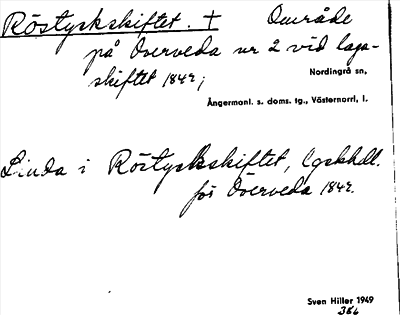 Röstyckskiftet. † Område
på Överveda nr 2 vid laga-
skiftet 1842;
Nordingrå sn,
Ångermanl. s. doms. tg., Västernorrl, l.
Linda i Röstyckskiftet, lgskhdl.
för Överveda 1842.
Sven Hiller 1949
366